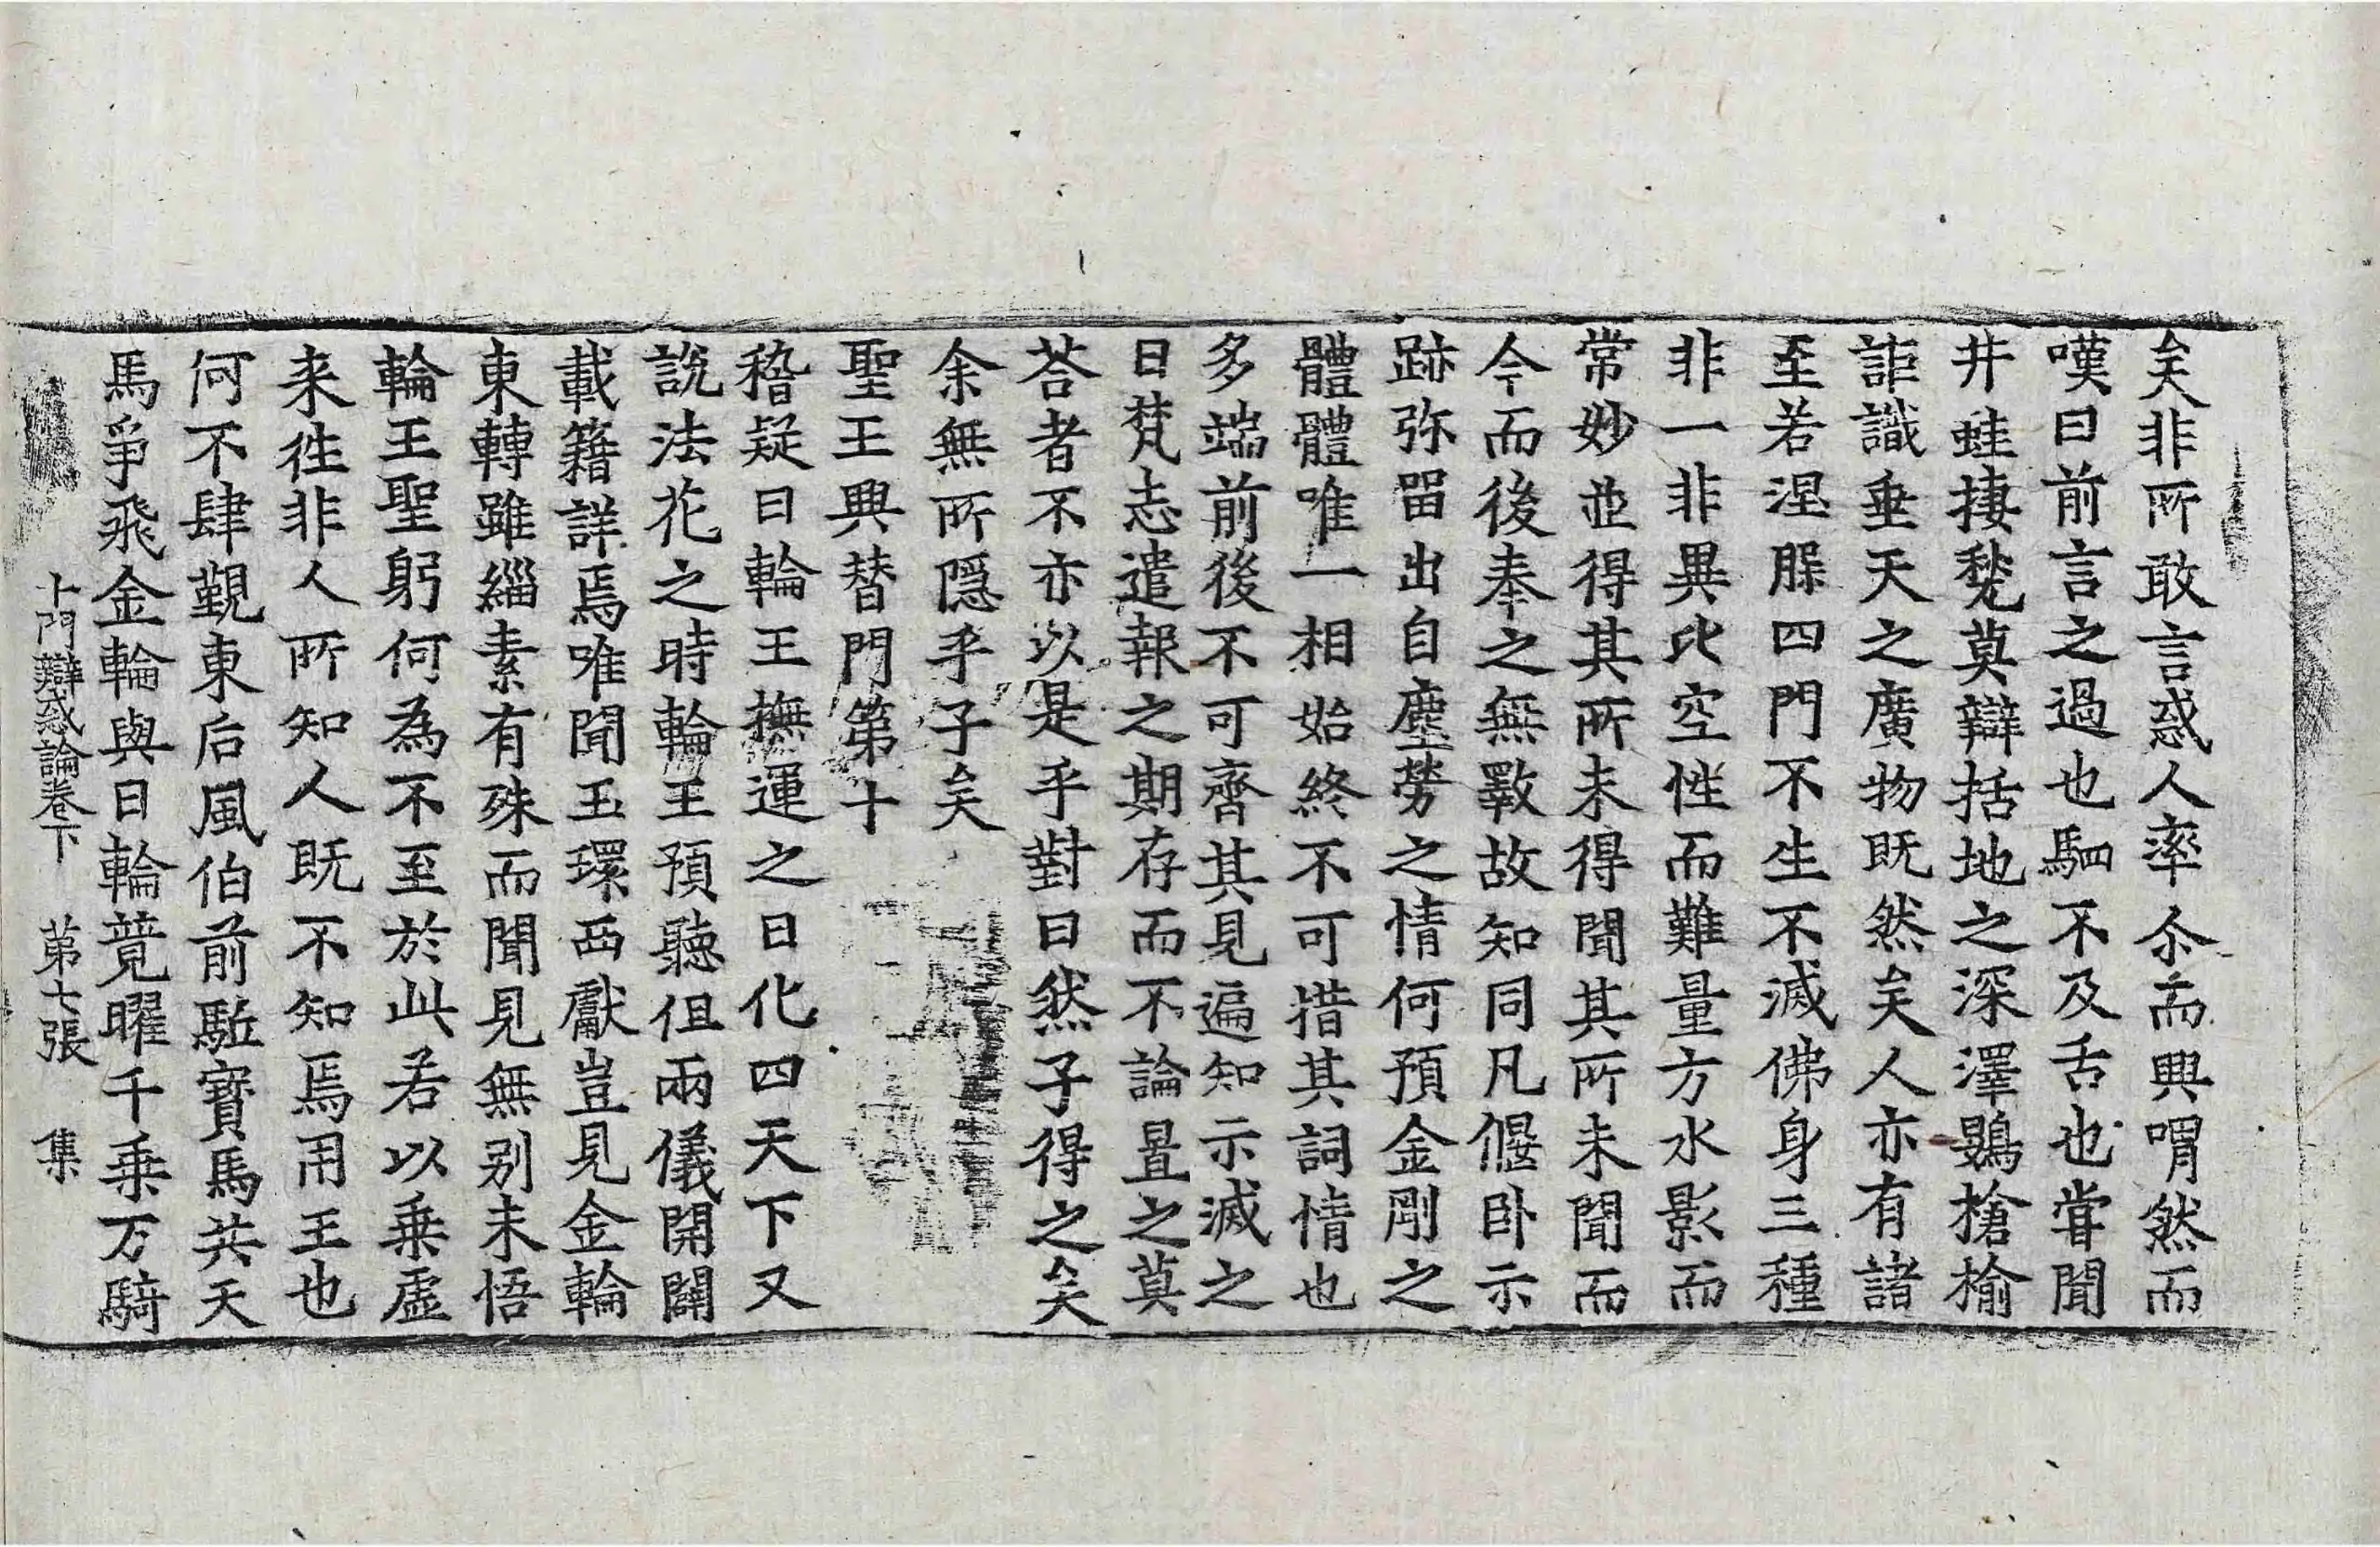 矣非所敢言惑人率尒而興喟然而
嘆曰前言之過也駟不及舌也甞聞
井蛙捿甃莫辯括地之深澤鷃槍榆
詎識垂天之廣物既然矣人亦有諸
至若涅槃四門不生不滅佛身三種
非一非異比空性而難量方水影而
常妙並得其所未得聞其所未聞而
今而後奉之無斁故知同凡偃卧示
跡弥留出自塵勞之情何預金剛之
體體唯一相始終不可措其詞情也
多端前後不可齊其見遍知示滅之
日梵志遣報之期存而不論置之莫
荅者不亦以是乎對曰然子得之矣
余無所隱乎子矣
聖王興替門第十
稽疑曰輪王撫運之日化四天下又
說法花之時輪王預聽但兩儀開闢
載籍詳焉唯聞玉環西獻豈見金輪
東轉雖緇素有殊而聞見無别未悟
輪王聖躬何為不至於此若以乗虛
来徃非人所知人既不知焉用王也
何不肆覲東后風伯前駈寶馬共天
馬爭飛金輪與日輪競曜千乗万騎
十門辯惑論卷下　第七張　集